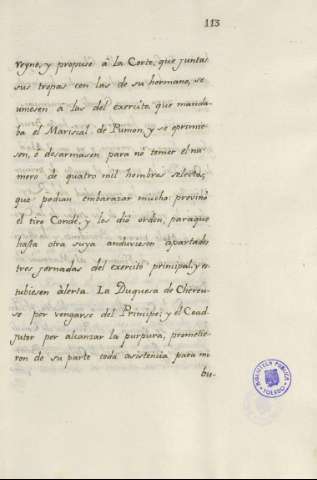 113
reyno, y propuse à la Corte, que juntas
sus tropas con las de su hermano, se
uniesen à las del exercito que manda-
ba el Mariscal de Pumon, y se oprimie-
sen, ò desarmasen para nò temer el nu-
mero de quatro mil hombres selectos,
que podian embarazar mucho: previnò
el tiro Condè, y les diò orden, paraque
hasta otra suya anduviesen apartados
tres jornadas del exercitò principal; y es-
tubiesen àlerta. La Duquesa de Chereu-
se por vengarse del Principe; y el Coad-
jutor por alcanzar la purpura, prometie-
ron de su parte toda asistencia para mi
bu-
BIBLIOTECA PÚBLICA
TOLEDO